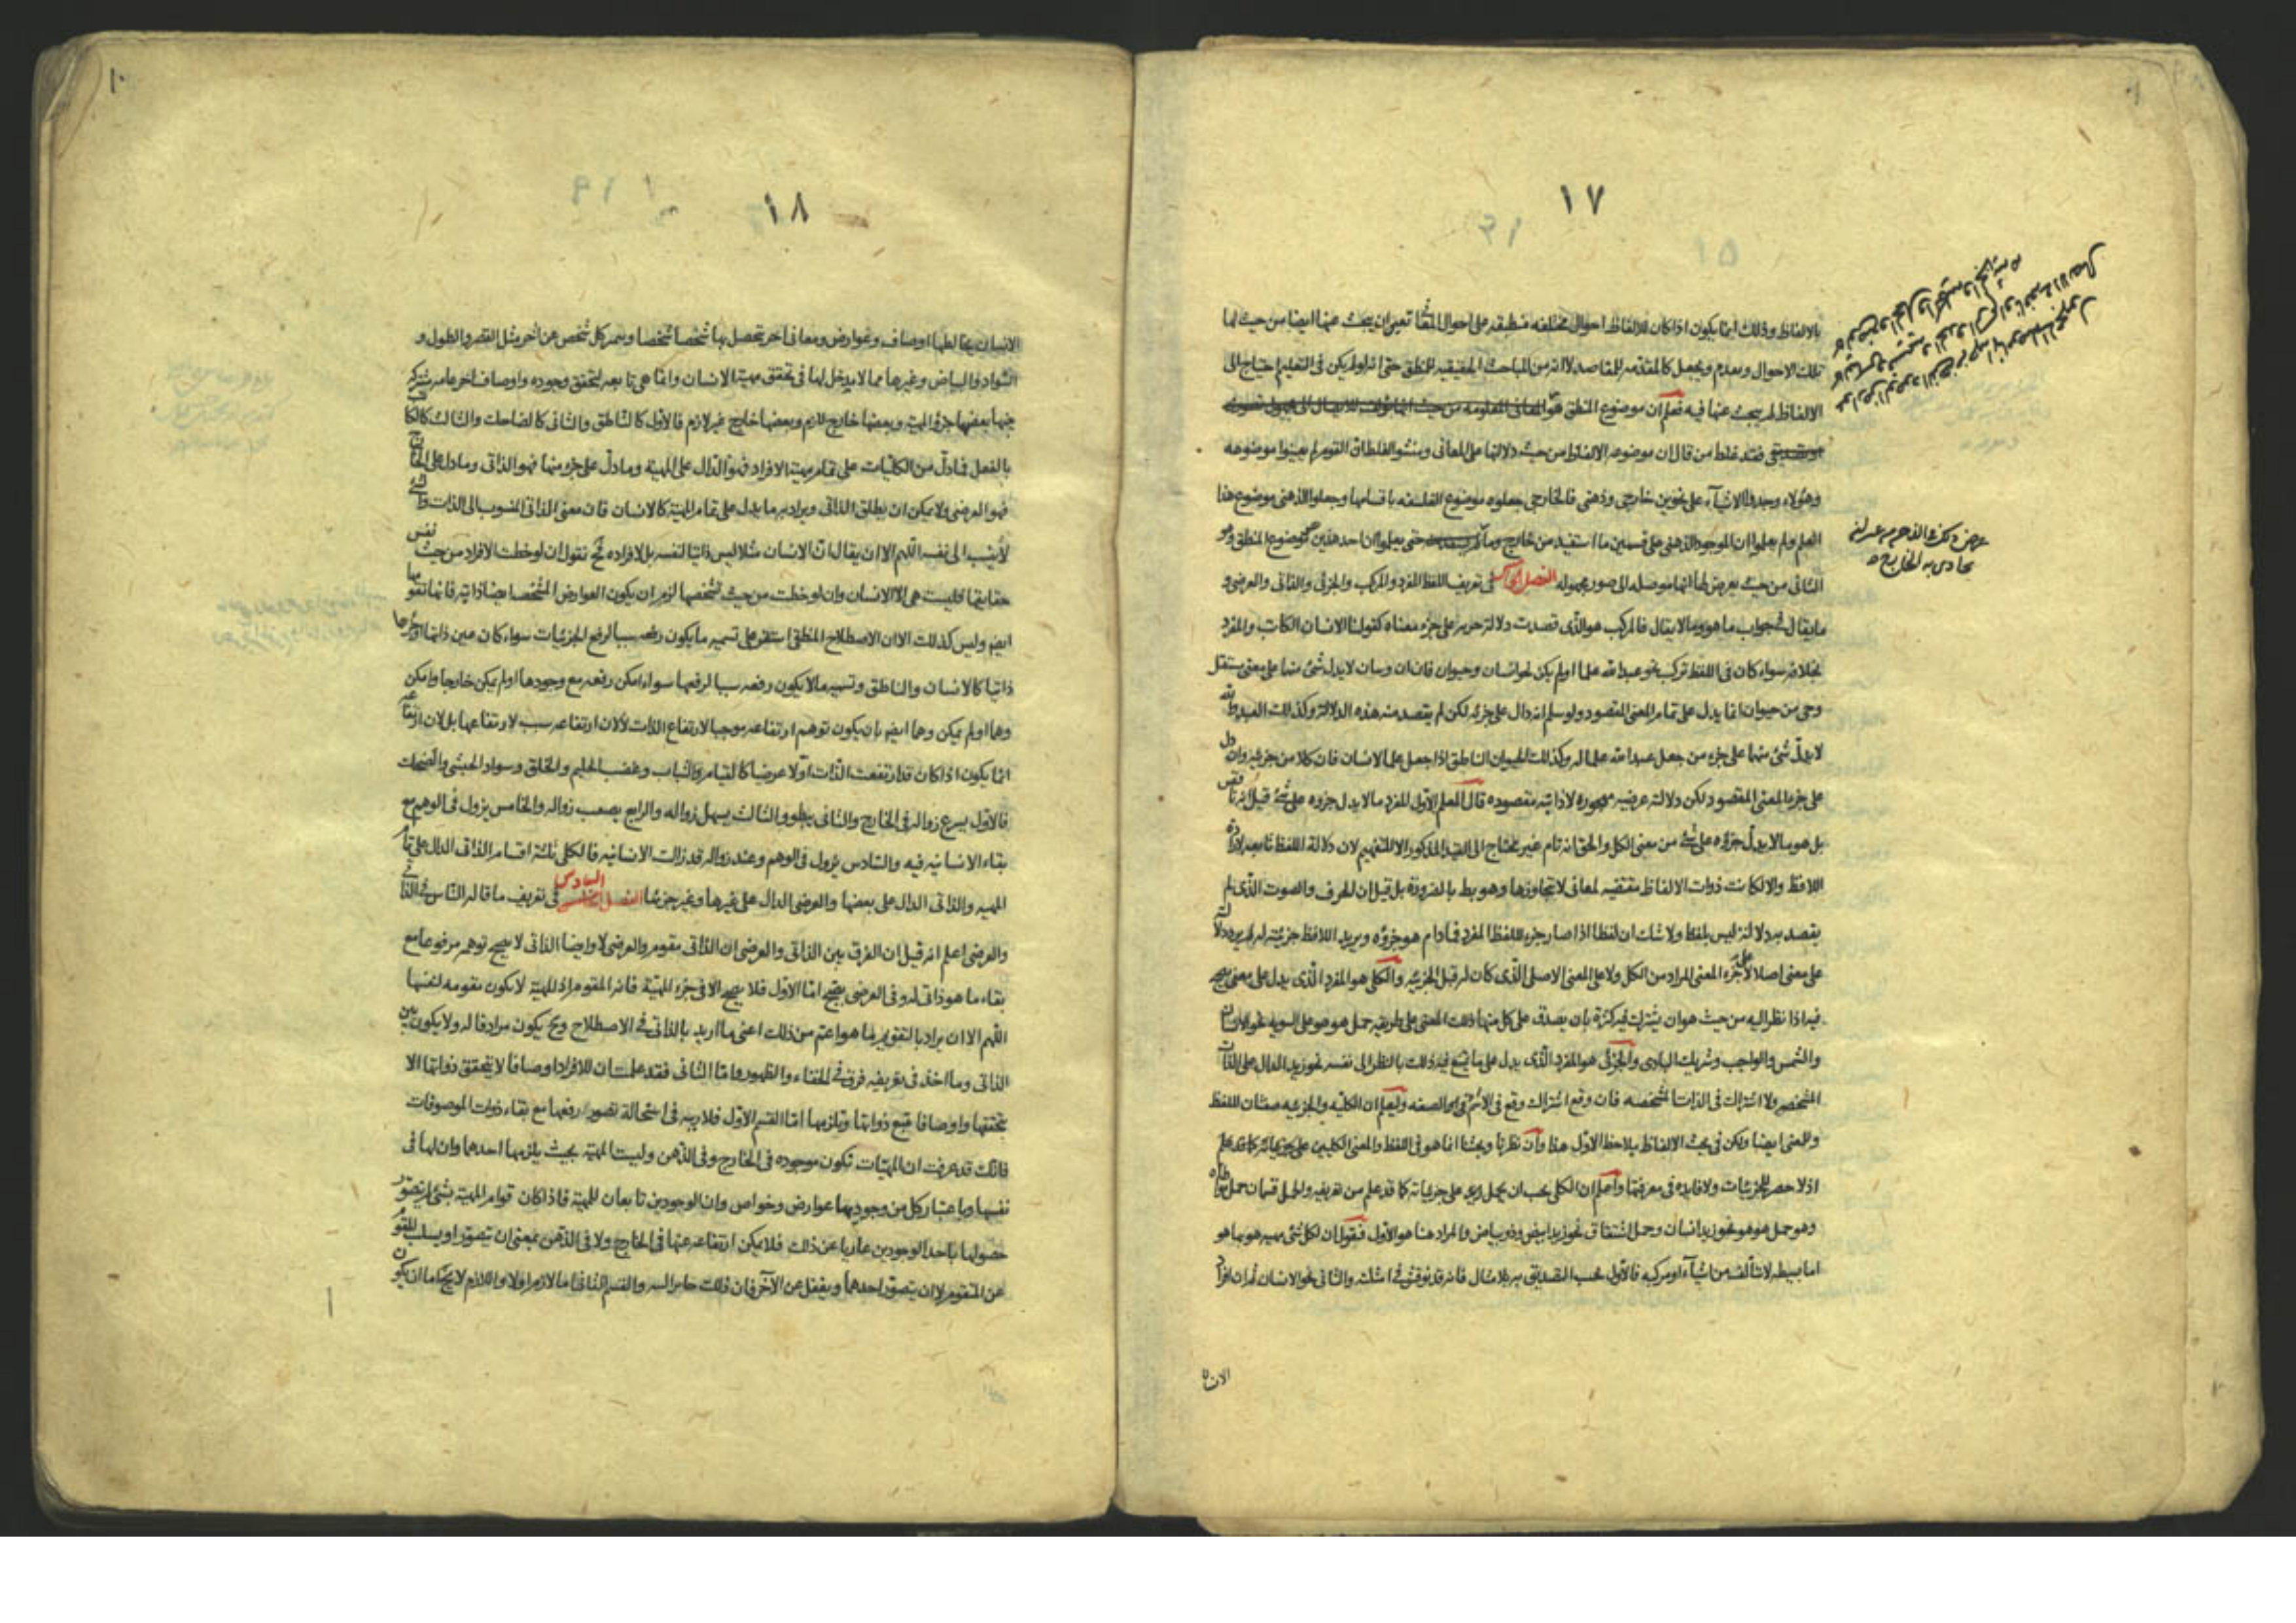 ١٧
بالالفاظ وذلك انما يكون اذا كان للالفاظ احوال مختلفه منطبقه على احوال تعين ان يبحث عنها ايضا من حيث لها
تلك الاحوال ويقدم ويجعل كالمقدمه للمقاصد لا انه من المباحث الحقيقيه للمنطق حتى انه لو لم يكن فى التعليم احتياج الى
الالفاظ لم يبحث عنها فيه فعلم ان موضوع المنطق هو المعانى المعلومه من حيث
فقد غلط من قال ان موضوعه الالفاظ من حيث دلالتها على المعانى ومنشو الغلط ان القوم لم يعينوا موضوعه
وهؤلاء وجدوا الاشيآء على نحوين خارجى وذهنى فالخارجى جعلوه موضوع الفلسفه باقسامها وجعلوا الذهنى موضوع هذا
العلم ولم يعلموا ان الموجود الذهنى على قسمين ما استفيد من خارج وما حتى يعلموا ان احد هذين موضوع المنطق وهو
الثانى من حيث يعرض لها انها موصله الى صور مجهوله الفصل الخامس فى تعريف اللفظ المفرد والمركب والجزئى والذاتى والعرضى و
ما يقال فى جواب ما هو وما لا يقال فالمركب هو الذى قصدت دلالة جزءه على جزء معناه كقولنا الانسان الكاتب والمفرد
بخلافه سواء كان فى اللفظ تركب نحو عبد الله علما او لم يكن نحو انسان وحيوان فان ان وسان لا يدل شئ منها على معنى مستقل
وحى من حيوان انما يدل على تمام المعنى المقصود ولو سلم انه دال على جزئه لكن لم يقصد منه هذه الدلالة وكذلك العبد والله
لا يدل شئ منهما على جزء من جعل عبد الله علما له وكذلك الحيوان الناطق اذا جعل علما لانسان فان كلا من جزئيه وان دل
على جزء المعنى المقصود لكن دلالته عرضيه مهجوره لا ذاتيه مقصوده قال المعلم الاول المفرد ما لا يدل جزءه على شئ قيل انه ناقص
بل هو ما لا يدل جزؤه على شئ من معنى الكل والحق انه تام غير محتاج الى القيد المذكور الا للتفهيم لان دلالة اللفظ تابعه لارادة
اللافظ والا لكانت ذوات الالفاظ مقتضيه لمعانى لا تتجاوزها وهو بط بالضرورة بل قيل ان الحرف والصوت الذى لم
يقصد به دلالة ليس بلفظ ولا شك ان لفظا اذا صار جزء اللفظ المفرد فمادام هو جزؤه ويريد اللافظ جزئيته له لم يرد دلالته
على معنى اصلا لا على جزء المعنى المراد من الكل ولا على المعنى الاصلى الذى كان له قبل الجزئيه والكلى هو المفرد الذى يدل على معنى يصح
فيه اذا نظر اليه من حيث هو ان يشترك فيه كثرة بان يصدق على كل منها ذلك المعنى على طريقه حمل هو هو على السويه نحو الانسان
والشمس والواجب وشريك البارى والجزئى هو المفرد الذى يدل على ما يمنع فيه ذلك بالنظر الى نفسه نحو زيد الدال على الذات
المشخصه ولا اشتراك فى الذات المشخصه فان وقع اشتراك وقع فى الاسم او الصفه وليعلم ان الكليه والجزئيه صفتان للفظ
وللمعنى ايضا ولكن فى بحث الالفاظ يلاحظ الاول هذا وان نظرنا وبحثنا انما هو فى اللفظ والمعنى الكليين على جزئياته كما قد علم
اذ لا حصر للجزئيات ولا فايده فى معرفتها واعلم ان الكلى يجب ان يحمل على جزئياته كما قد علم من تعريفه والحمل قسمان حمل مواطاه
وهو حمل هو هو نحو زيد انسان وحمل اشتقاق نحو زيد ابيض وذو بياض والمراد هنا هو الاول فنقول ان لكل شئ مهيه هو بها هو
اما بسيطه لا تتألف من اشيآء او مركبه فالاول يجب التصديق به بلا مثال فانه قد توقف فى امثلته والثانى نحو الانسان
الانسان
١٨
الانسان يخالطها اوصاف وعوارض ومعانى اخر تحصل بها شخصا شخصا ويميز كل شخص عن اخر مثل القصر والطول و
السواد والبياض وغيرها مما لا يدخل لها فى تحقق مهية الانسان وانما هى تابعه لتحقق وجوده واوصاف اخر عامه مشتركه
بينها بعضها جزؤ المهيه وبعضها خارج لازم وبعضها خارج غير لازم فالاول كالناطق والثانى كالضاحك والثالث كالكاتب
بالفعل فما دل من الكليات على تمام مهية الافراد فهو الدال على المهية وما دل على جزء منها فهو الذاتى وما دل على الخارج
فهو العرضى ولا يمكن ان يطلق الذاتى ويراد به ما يدل على تمام المهية كالانسان فان معنى الذاتى المنسوب الى الذات والشئ
لا ينسب الى نفسه اللهم الا ان يقال ان الانسان مثلا ليس ذاتيا لنفسه بل لافراده ثم نقول ان لوحظت الافراد من حيث نفس
حقايقها فليست هى الا الانسان وان لوحظت من حيث تشخصها لزم ان يكون العوارض المشخصه ايضا ذاتيه فانها تقومها
ايضا وليس كذلك الا ان الاصطلاح المنطقى استقر على تسميه ما يكون رفعه سببا لرفع الجزئيات سواء كان عين ذاتها او جزءها
ذاتيا كالانسان والناطق وتسميه ما لا يكون رفعه سببا لرفعها سواء امكن رفعه مع وجودها او لم يمكن خارجا وامكن
وهما او لم يمكن وهما ايضا بان يكون توهم ارتفاعه موجبا لارتفاع الذات لا لان ارتفاعه سبب لارتفاعها بل لان ارتفاعه
انما يكون اذا كان قد ارتفعت الذات اولا عرضيا كالقيام والشباب وغضب الحليم والخلق وسواد الحبشى والضحك
فالاول يسرع زواله فى الخارج والثانى يبطو والثالث يسهل زواله والرابع يصعب زواله والخامس يزول فى الوهم مع
بقاء الانسانيه فيه والسادس يزول فى الوهم وعند زواله قد زالت الانسانيه فالكلى ثلثة اقسام الذاتى الدال على تمام
المهيه والذاتى الدال على بعضها والعرضى الدال على غيرها وغير جزئها الفصل السادس فى تعريف ما قاله الناس فى الذاتى
والعرضى اعلم انه قيل ان الفرق بين الذاتى والعرضى ان الذاتى مقوم والعرضى لا وايضا الذاتى لا يصح توهمه مرفوعا مع
بقاء ما هو ذاتى له وفى العرضى يصح اما الاول فلا يصح الا فى جزء المهية فانه المقوم اذ المهية لا يكون مقومه لنفسها
اللهم الا ان يراد بالتقويم ما هو اعم من ذلك اعنى ما اريد بالذاتى فى الاصطلاح وح يكون مرادفا له ولا يكون بين
الذاتى وما اخذ فى تعريفه فرق فى الخفاء والظهور واما الثانى فقد علمت ان للافراد اوصافا لا يتحقق ذواتها الا
بتحققها واوصافا تتبع ذواتها وتلزمها اما القسم الاول فلا ريب فى استحالة تصور رفعها مع بقاء ذوات الموصوفات
فانك قد عرفت ان المهيات تكون موجوده فى الخارج وفى الذهن وليست المهية بحيث يلزمها احدهما وان لها فى
نفسها وباعتبار كل من وجوديها عوارض وخواص وان الوجودين تابعان للمهية فاذا كان قوام المهية بشئ لم يتصور
حصولها باحد الوجودين عاريا عن ذلك فلا يمكن ارتفاعه عنها فى الخارج ولا فى الذهن بمعنى ان يتصور او يسلب المقوم
عن المتقوم لا ان يتصور احدهما ويغفل عن الآخر فان ذلك جايز البته والقسم الثانى اما لازم اولا واللازم لا يخ اما ان يكون